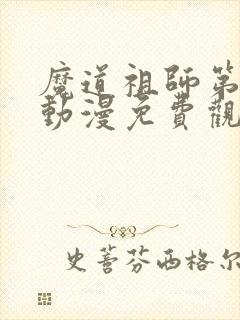 魔道祖師第
動漫免費觀
史蒂芬西格尔